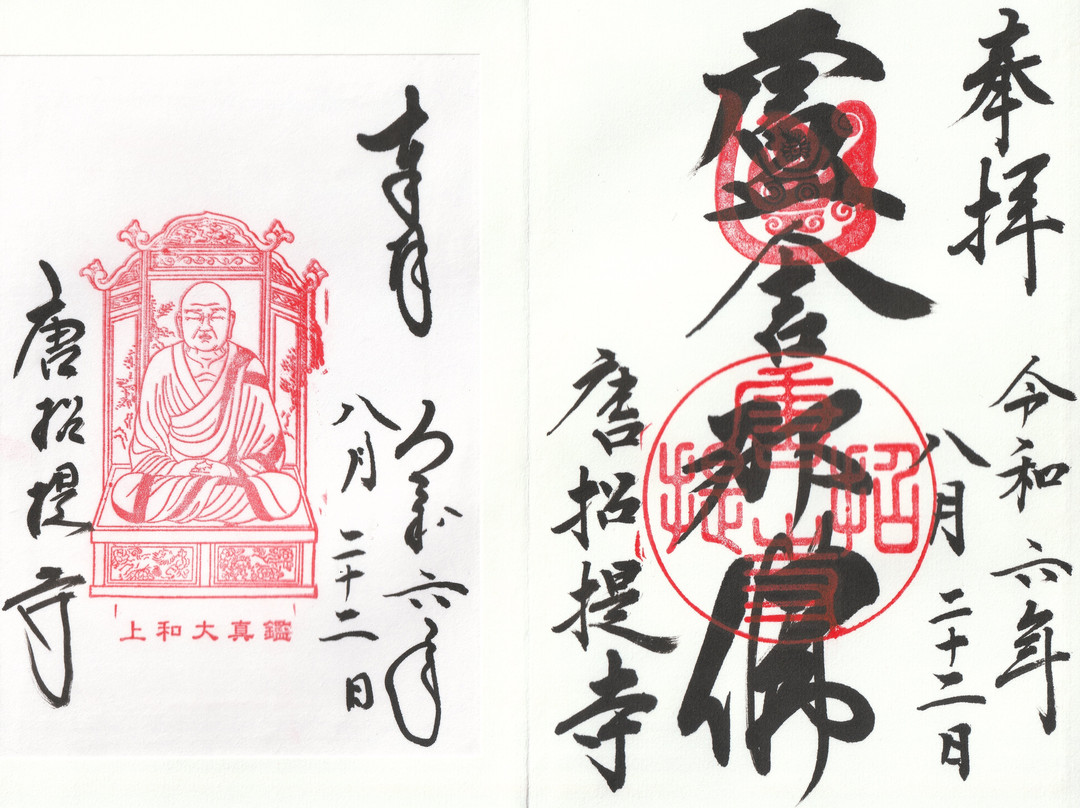 奉拝
令和六年
八月二十二日
盧舎那佛
唐招提寺
唐招提寺
奉拝
令和六年
八月二十二日
鑑真大和上
唐招提寺